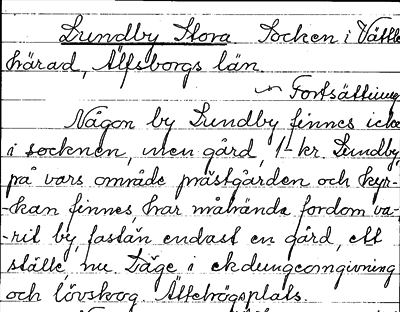 Lundby Stora Socken i Vättle
härad, Älfsborgs län.
Fortsättning
Någon by Lundby finnes icke
i socknen, men gård, 1 kr. Lundby,
på vars område prästgården och kyr-
-kan finnes, har måhända fordom va-
-rit by, fastän endast en gård, ett
ställe, nu. Läge i ekdungeomgivning
och lövskog. Ättehögsplats.